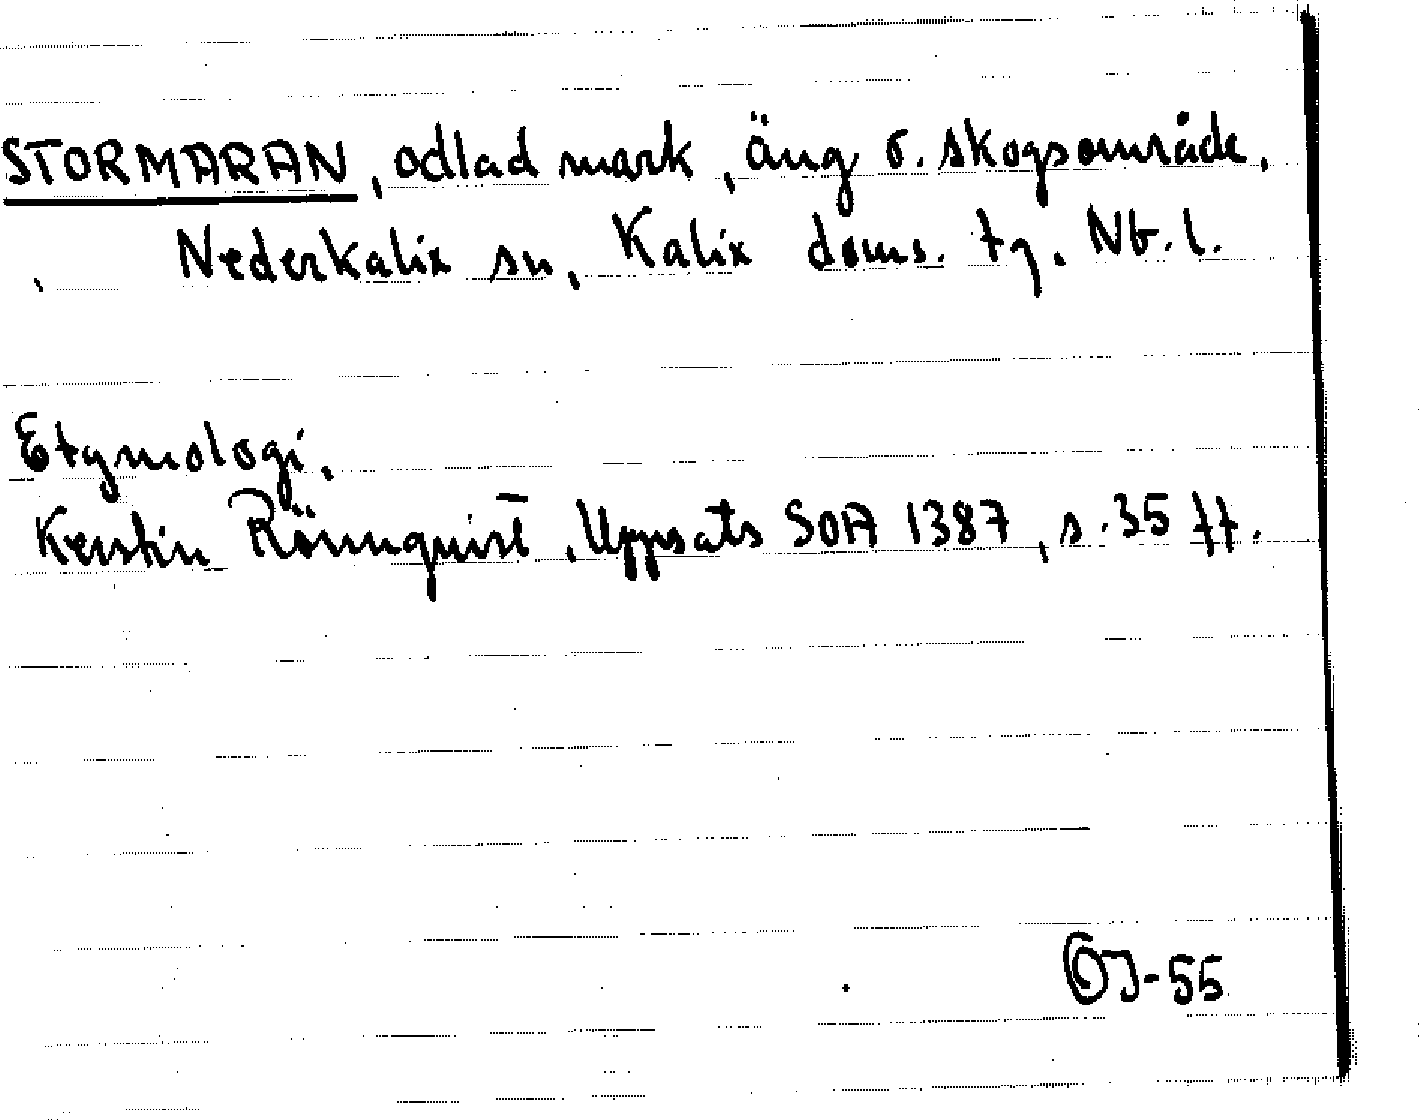 STORMARAN, odlad mark, äng o. skogsområde,
Nederkalix sn, Kalix doms. tg. Nb. l.
Etymologi.
Kerstin Rönnquist, Uppsats SOA 1387, s. 35 ff.
ÖJ-55